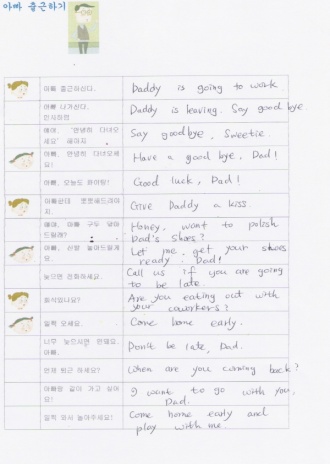 아빠 출근하기
아빠 출근하신다.
Daddy is going to work.
아빠 나가신다.
인사하렴
Daddy is leaving. Say good bye
Say goodbye, Sweetie.
아빠, 안녕히 다녀오세
요!
Have a good bye, Dad!
아빠, 오늘도 화이팅!
Good luck, Dad!
Give Daddy a kiss
Honey, want to polish
Dad's Shoes?
Let me, get your shoes
ready, Dad!
늦으면 전화하세요.
Call us if you are going
to be late.
Are you eating out with
your coworkers?
일찍 오세요.
Come home early.
너무 늦으시면 안돼요,
아빠.
Don't be late, Dad.
언제 퇴근 하세요?
When are you coming back?
아빠랑 같이 가고 싶어
요!
I want to go with you,
Dad.
일찍 와서 놀아주세요!
Come home early and
play with me.